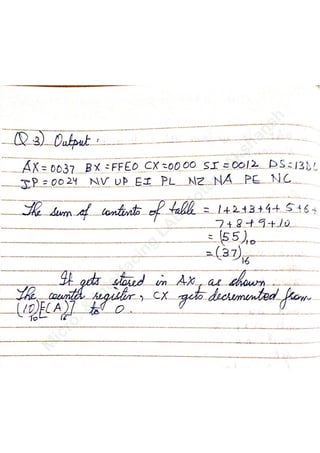 Q 3) Output :
AX = 0037 BX = FFE0 CX = 0000 SI = 0012 DS = 13DC
IP = 0024 NV UP EI PL NZ NA PE NC
The sum of contents of table = 1+2+3+4+5+6+
7+8+9+10
= (55)10
= (37)16
It gets stored in AX, as shown
The counter register, CX gets decremented from
(10)10 [(A)16] to 0.